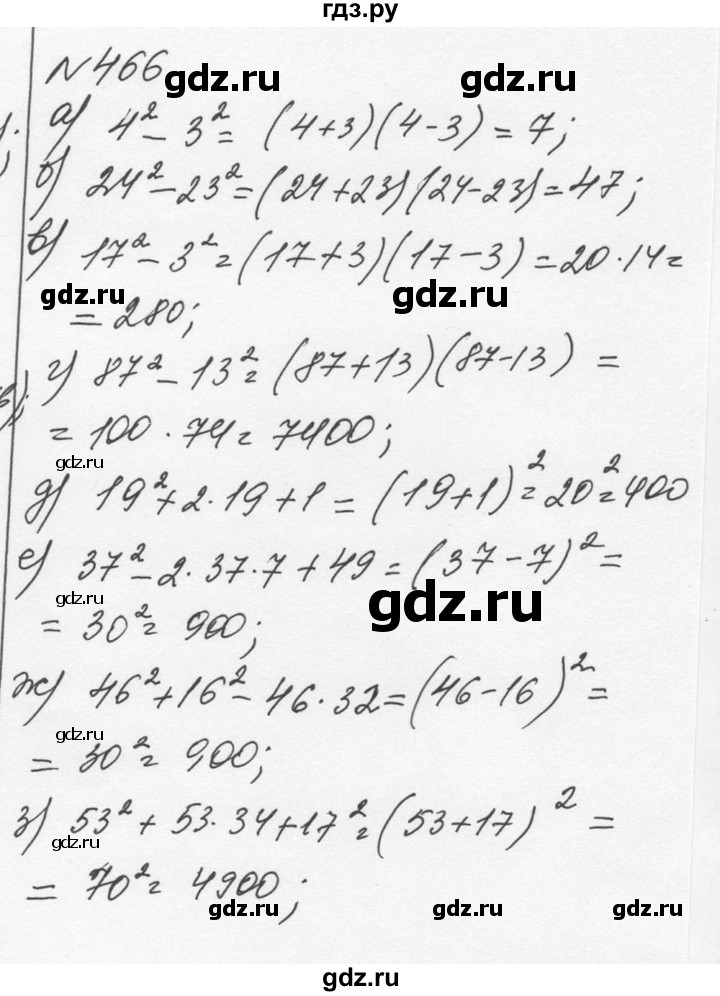 гдз.ру
№466
gdz.ru
а) 4² - 3² = (4+3)(4-3) = 7;
б) 24² - 23² = (24+23)(24-23) = 47;
gdz.ru gdz.ru
в) 17² - 3² = (17+3)(17-3) = 20·14 =
gdz.ru gdz.ru
= 280;
г) 87² - 13² = (87+13)(87-13) =
= 100·74 = 7400;
gdz.ru
д) 19² + 2·19 + 1 = (19+1)² = 20² = 400
gdz.ru
е) 37² - 2·37·7 + 49 = (37-7)² =
gdz.ru gdz.ru
= 30² = 900;
ж) 46² + 16² - 46·32 = (46-16)² =
gdz.ru
= 30² = 900;
з) 53² + 53·34 + 17² = (53+17)² =
gdz.ru
= 70² = 4900;
gdz.ru gdz.ru
gdz.ru